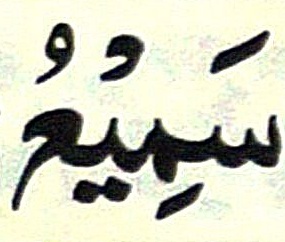 سَمِيُعُ